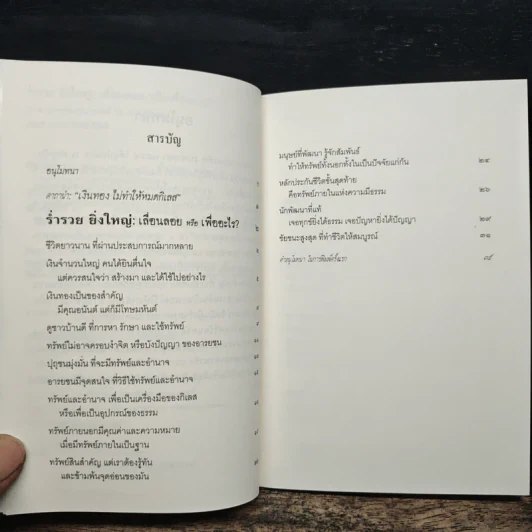 สารบัญ
อนุโมทนา
คาถานำ: "เงินทอง ไม่ทำให้หมดกิเลส"
ร่ำรวย ยิ่งใหญ่: เลื่อนลอย หรือ เพื่ออะไร?
ชีวิตยาวนาน ที่ผ่านประสบการณ์มากหลาย
เงินจำนวนใหญ่ คนได้ยินตื่นใจ
แต่ควรสนใจว่า สร้างมา และได้ใช้ไปอย่างไร
เงินทองเป็นของสำคัญ
มีคุณอนันต์ แต่ก็มีโทษมหันต์
ดูชาวบ้านดี ที่การหา รักษา และใช้ทรัพย์
ทรัพย์ไม่อาจครอบงำจิต หรือบังปัญญา ของอารยชน
ปุถุชนมุ่งมั่น ที่จะมีทรัพย์และอำนาจ
อารยชนมีจุดสนใจ ที่วิธีใช้ทรัพย์และอำนาจ
ทรัพย์และอำนาจ เพื่อเป็นเครื่องมือของกิเลส
หรือเพื่อเป็นอุปกรณ์ของธรรม
ทรัพย์ภายนอกมีคุณค่าและความหมาย
เมื่อมีทรัพย์ภายในเป็นฐาน
ทรัพย์สินสำคัญ แต่เราต้องรู้ทัน
และข้ามพ้นจุดอ่อนของมัน
มนุษย์ที่พัฒนา รู้จักสัมพันธ์
ทำให้ทรัพย์ทั้งนอกทั้งในเป็นปัจจัยแก่กัน ๒๔
หลักประกันชีวิตขั้นสุดท้าย
คือทรัพย์ภายในแห่งความมีธรรม ๒๖
นักพัฒนาที่แท้
เจอทุกข์ยิ่งได้ธรรม เจอปัญหายิ่งได้ปัญญา ๒๙
ชัยชนะสูงสุด ที่ทำชีวิตให้สมบูรณ์ ๓๑
คำอนุโมทนา ในการพิมพ์ครั้งแรก